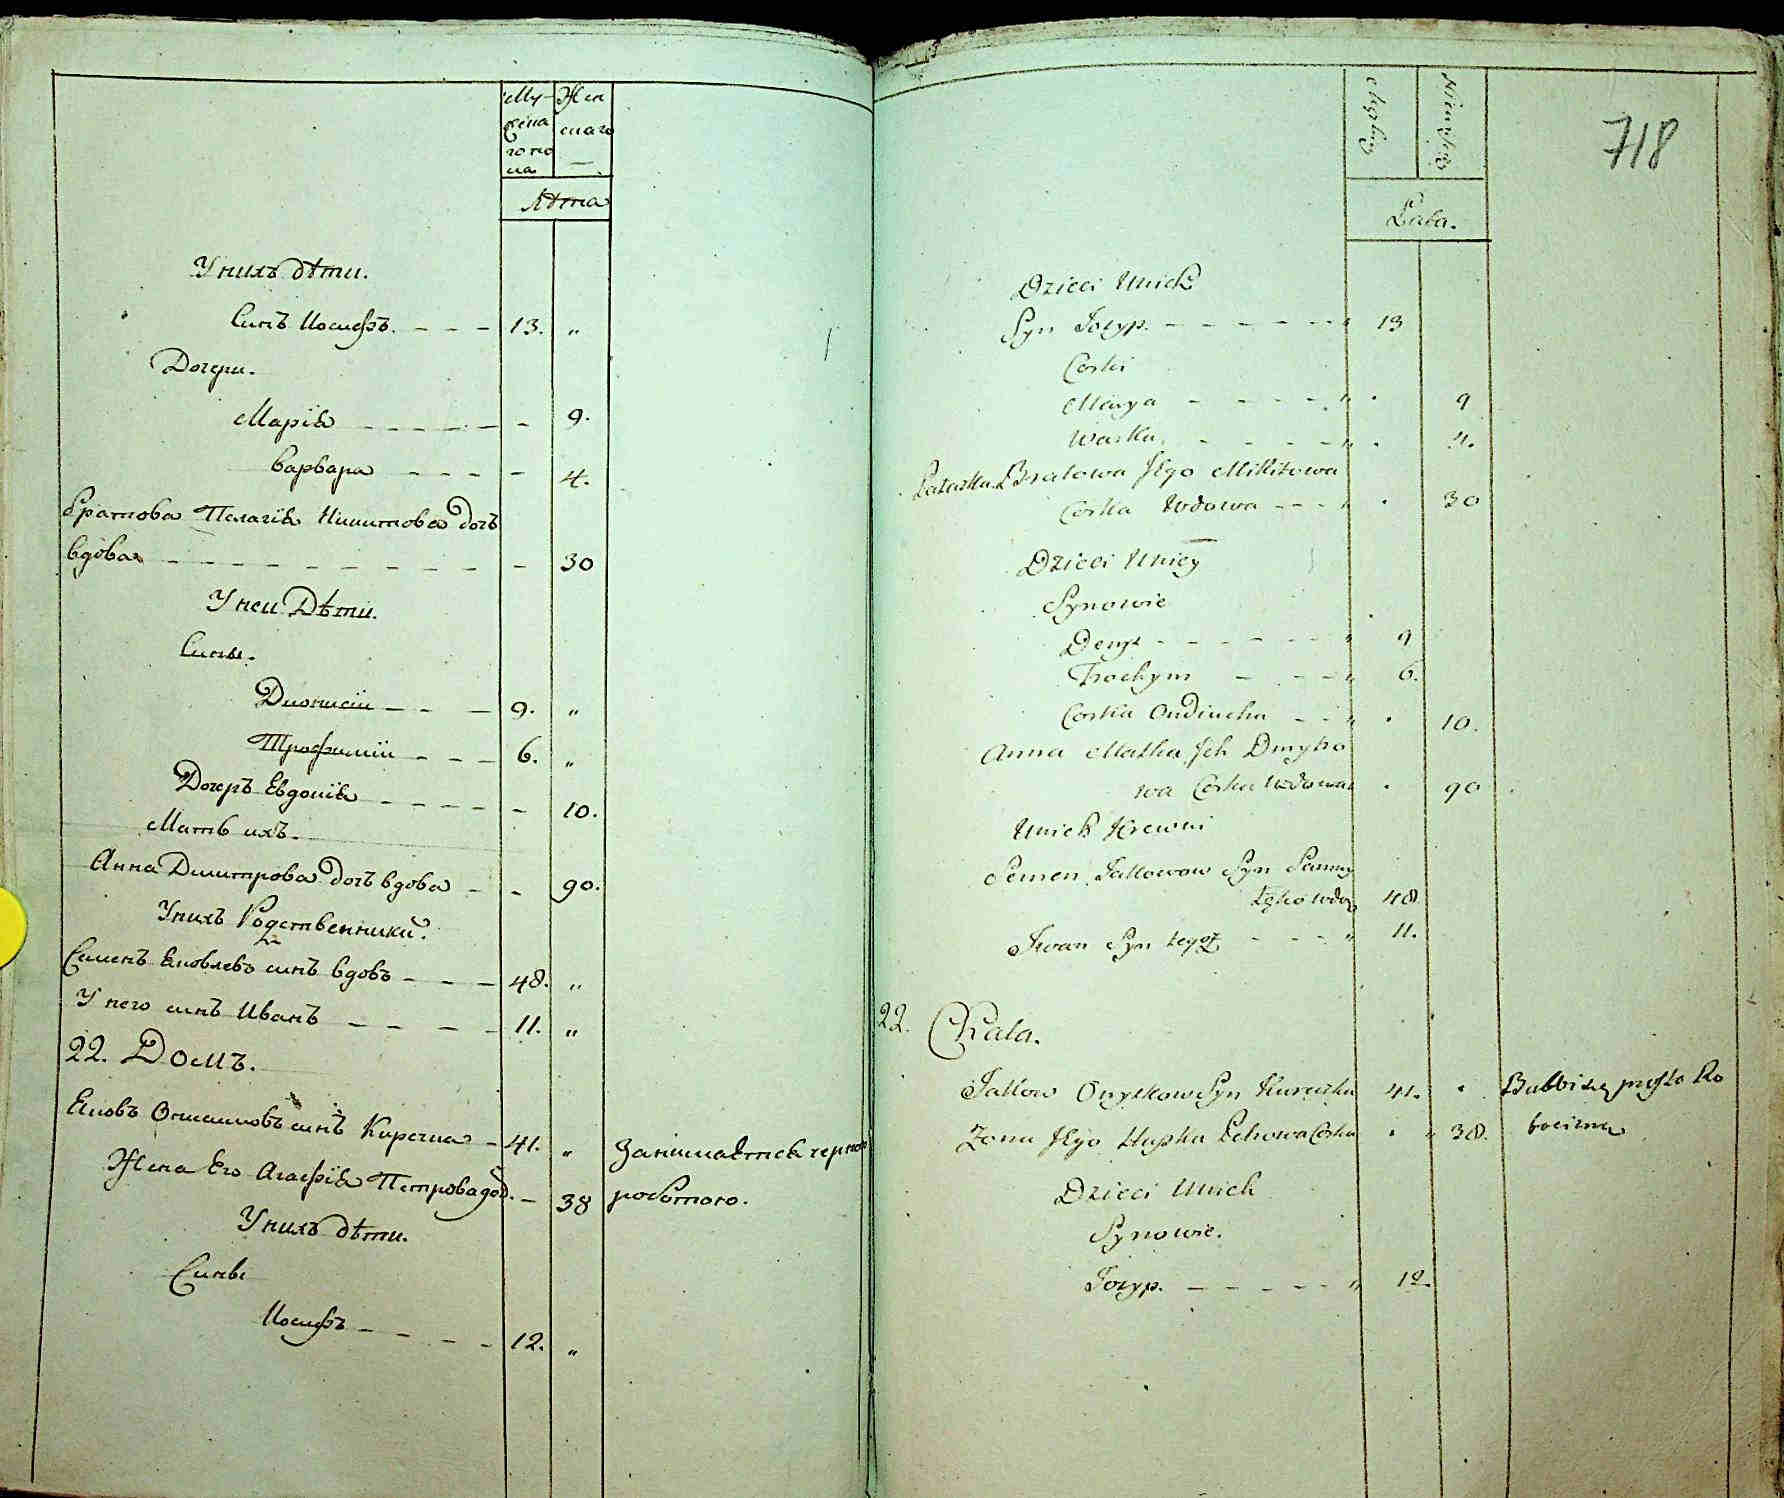 Му-
жеска
го по
ла
Жен
скаго
Лѣта
У нихъ дѣти.
Синъ Иосифъ. 13. „
Дочери.
Марія 9.
Варвара 4.
Братова Пелагія Никитова дочь
вдова 30
У неи Дѣти.
Сины.
Дионисіи 9. „
Трофимии 6. „
Дочерь Евдокія 10.
Мать ихъ.
Анна Димитрова дочь вдова 90.
У нихъ Родственники.
Семенъ Яковлевъ синъ вдовъ 48. „
У него синъ Иванъ 11. „
22. Домъ.
Яковъ Онисимовъ синъ 41. „ Занимается черно
Жена Его Агафія Петрова доч. 38 работою.
У нихъ дѣти.
Сины
Иосифъ 12. „
718
Lata.
Dzieci Unich
Syn Jozyp. 13
Corki
Marya 9
Warka 4.
Bratowa Jego Mikitowa
Corka Wdowa 30
Dzieci Uniey
Synowie
Denys 9
Trochym 6.
Corka Oudiucha 10.
Anna Matka Jch Dmytro
wa Corka Wdowa 90
Unich Krewni
Semen Jakowow Syn
wdow 48
Jwan Syn tegoż 11.
22. Chata.
Jakow Syn 41.
Zona Jego Corka 38.
Dzieci Unich
Synowie.
Jozyp. 12.